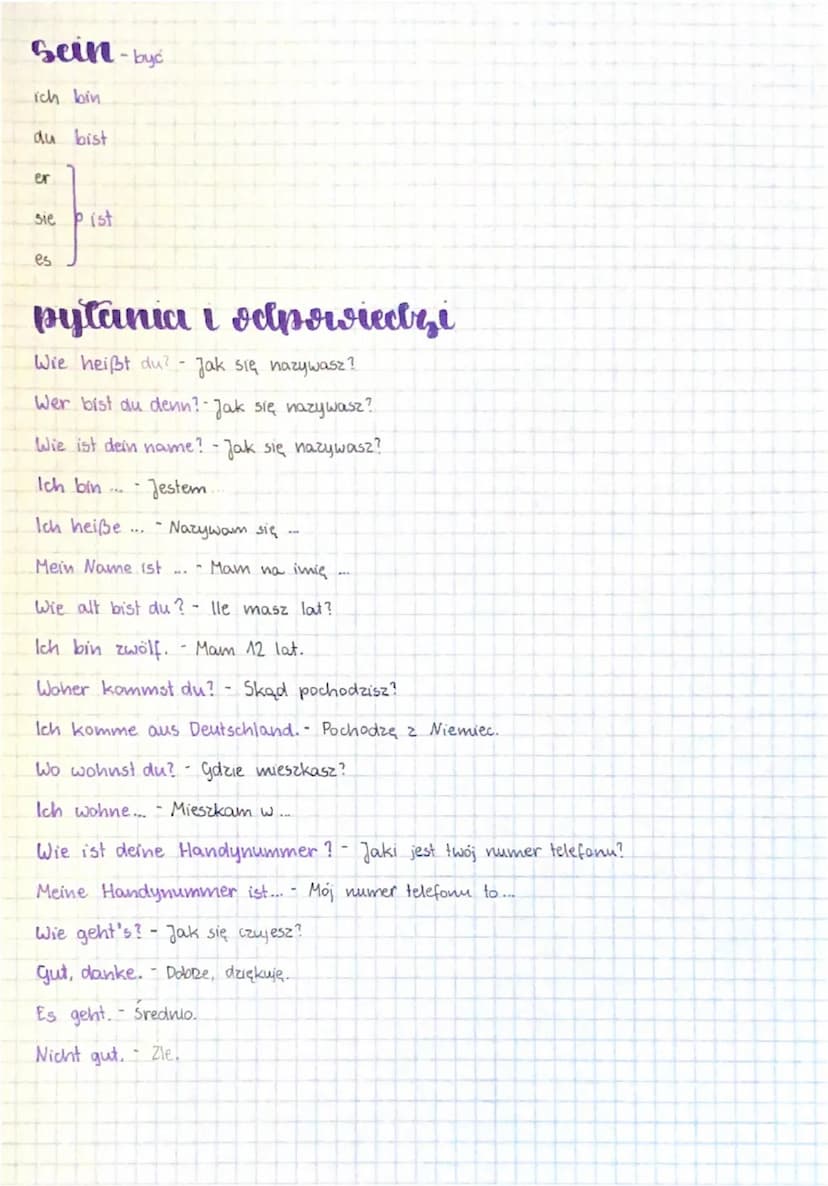 sein - być
ich bin
du bist
er
sie ist
es
pytania i odpowiedzi
Wie heißt du? - Jak się nazywasz?
Wer bist du denn? - Jak się nazywasz?
Wie ist dein name? - Jak się nazywasz?
Ich bin ... - Jestem ...
Ich heiße ... - Nazywam się ...
Mein Name ist ... - Mam na imię ...
Wie alt bist du? - Ile masz lat?
Ich bin zwölf. - Mam 12 lat.
Woher kommst du? - Skąd pochodzisz?
Ich komme aus Deutschland. - Pochodzę z Niemiec.
Wo wohnst du? - Gdzie mieszkasz?
Ich wohne... - Mieszkam w ...
Wie ist deine Handynummer? - Jaki jest twój numer telefonu?
Meine Handynummer ist... - Mój numer telefonu to...
Wie geht's? - Jak się czujesz?
Gut, danke. - Dobrze, dziękuję.
Es geht. - Średnio.
Nicht gut. - Źle.